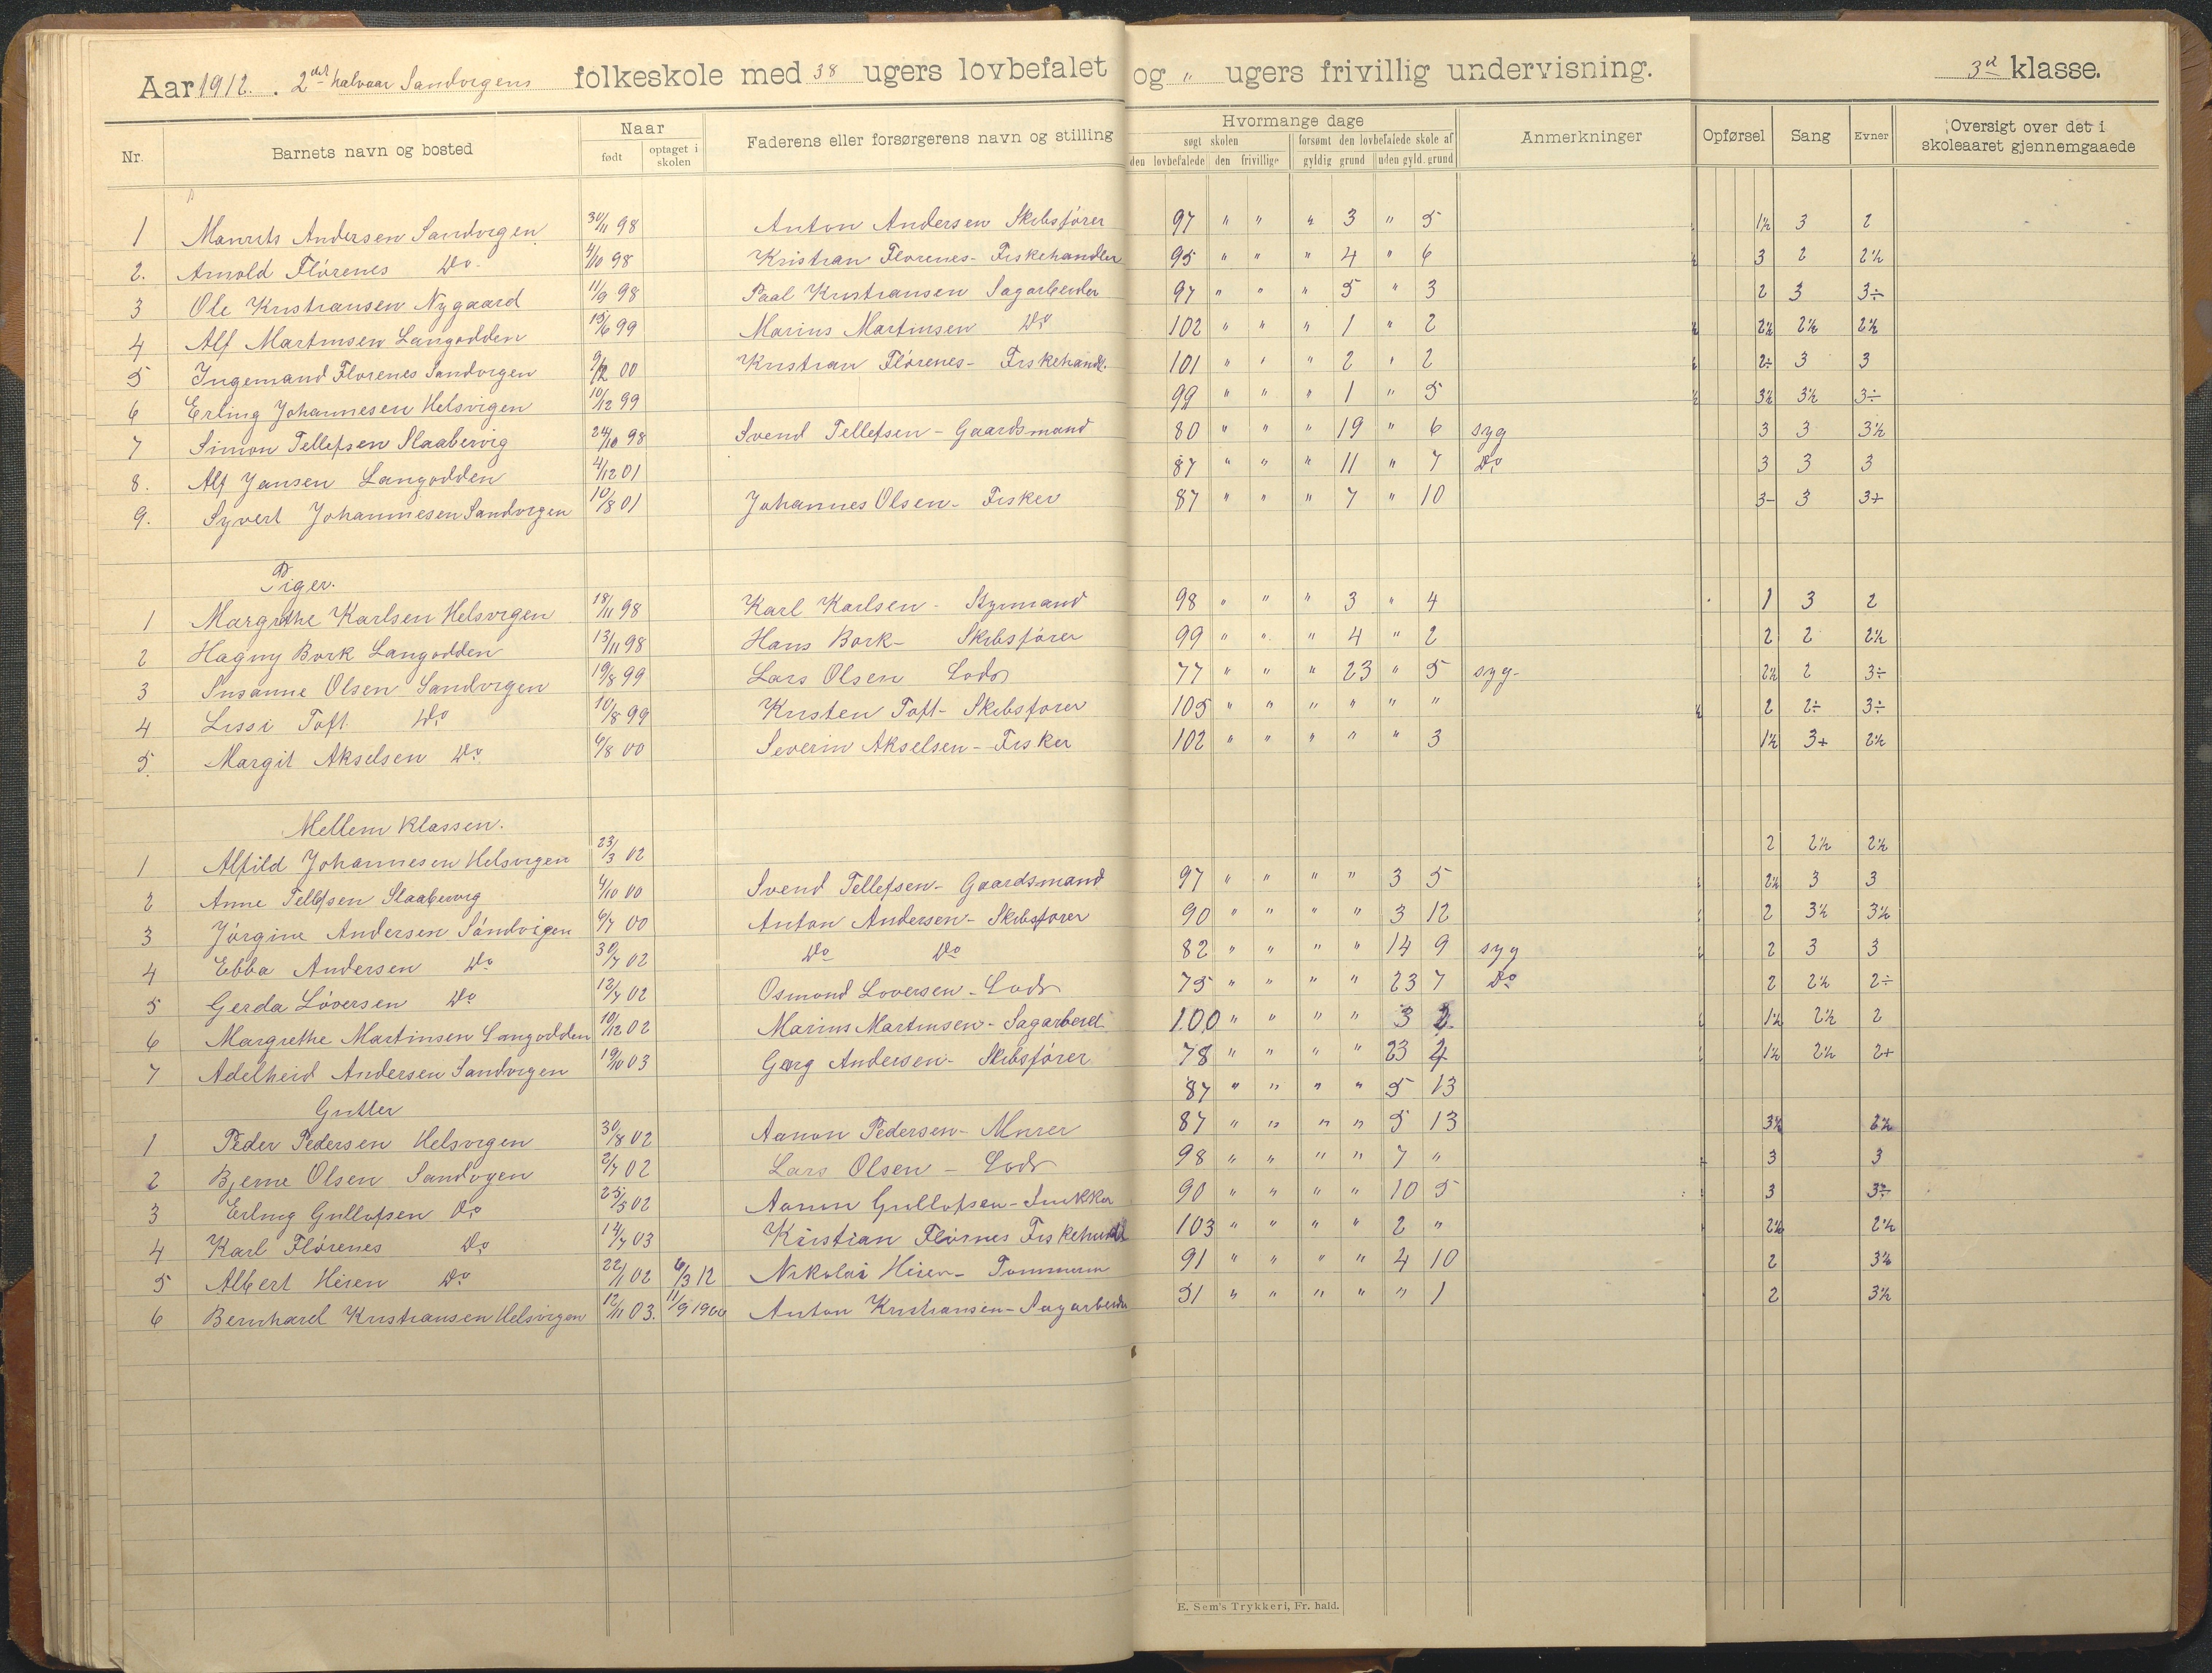 Aar 1912. 2det halvaar Sandvigens folkeskole med 38 ugers lovbefalet og " ugers frivillig undervisning. 3d klasse.
Nr. Barnets navn og bosted Naar født optaget i skolen Faderens eller forsørgerens navn og stilling Hvormange dage søgt skolen den lovbefalede den frivillige forsømt den lovbefalede skole af gyldig grund uden gyld. grund Anmerkninger Opførsel Sang Evner Oversigt over det i skoleaaret gjennemgaaede
1 Maurits Andersen Sandvigen 30/11 98 Anton Andersen Skibsfører 97 " " " 3 " 5 1½ 3 2
2. Arnold Flörenes Do. 4/10 98 Kristian Florenes - Fiskehandler 95 " " " 4 " 6 3 2 2½
3 Ole Kristiansen Nygaard 11/9 98 Paal Kristiansen Sagarbeider 97 " " " 5 " 3 2 3 3÷
4 Alf Martinsen Langodden 15/6 99 Marius Martinsen Do 102 " " " 1 " 2 2½ 2½ 2½
5 Ingemand Florenes Sandvigen 9/12 00 Kristian Flörenes - Fiskehandl. 101 " " " 2 " 2 2÷ 3 3
6 Erling Johannesen Helsvigen 10/12 99 99 " " " 1 " 5 3½ 3½ 3÷
7 Simon Tellefsen Slaabervig 24/10 98 Svend Tellefsen - Gaardsmand 80 " " " 19 " 6 syg 3 3 3½
8. Alf Jansen Langodden 4/12 01 87 " " " 11 " 7 Do 3 3 3
9. Syvert Johannesen Sandvigen 10/8 01 Johannes Olsen - Fisker 87 " " " 7 " 10 3- 3 3+
Piger.
1 Margrethe Karlsen Helsvigen 18/11 98 Karl Karlsen - Styrmand 98 " " " 3 " 4 1 3 2
2 Hagny Bork Langodden 13/11 98 Hans Bork - Skibsfører 99 " " " 4 " 2 2 2 2½
3 Susanne Olsen Sandvigen 19/8 99 Lars Olsen Lods 77 " " " 23 " 5 syg - 2½ 2 3÷
4 Lissi Toft Do 10/8 99 Kristen Toft - Skibsfører 105 " " " " " " 2 2÷ 3÷
5. Margit Akselsen Do 6/8 00 Severin Akselsen - Fisker 102 " " " " " 3 1½ 3+ 2½
Mellem klassen.
1 Alfild Johannesen Helsvigen 23/3 02 2 2½ 2½
2 Anne Tellefsen Slaabervig 4/10 00 Svend Tellefsen - Gaardsmand 97 " " " " 3 5 2½ 3 3
3 Jörgine Andersen Sandvigen 6/7 00 Anton Andersen - Skibsfører 90 " " " " 3 12 2 3½ 3½
4 Ebba Andersen Do 30/7 02 Do Do 82 " " " " 14 9 syg 2 3 3
5 Gerda Löversen Do 12/7 02 Osmond Loversen - Lods 75 " " " " 23 7 Do 2 2½ 2÷
6 Margrethe Martinsen Langodden 10/12 02 Marius Martinsen - Sagarbeid. 100 " " " " 3 2 1½ 2½ 2
7 Adelheid Andersen Sandvigen 19/10 03 Georg Andersen - Skibsfører 78 " " " " 23 4 1½ 2½ 2+
87 " " " " 5 13
Gutter
1 Peder Pedersen Helsvigen 30/8 02 Aanon Pedersen - Murer 87 " " " " 5 13 3½ 2½
2 Bjerne Olsen Sandvigen 2/7 02 Lars Olsen - Lods 98 " " " " 7 " 3 3
3 Erling Gullofsen Do 25/5 02 Aanon Gullofsen - Snekker 90 " " " " 10 5 3 3÷
4 Karl Flörenes Do 14/7 03 Kristian Flörnes Fiskehandl 103 " " " " 2 " 2½ 2½
5 Albert Heien Do 22/1 02 6/3 12 Nikolai Heien - Tømmerm 91 " " " " 4 10 2 3½
6 Bernhard Kristiansen Helsvigen 12/11 03. 11/9 Anton Kristiansen - Sagarbeider 51 " " " " " 1 2 3½
E. Sem's Trykkeri, Fr. hald.